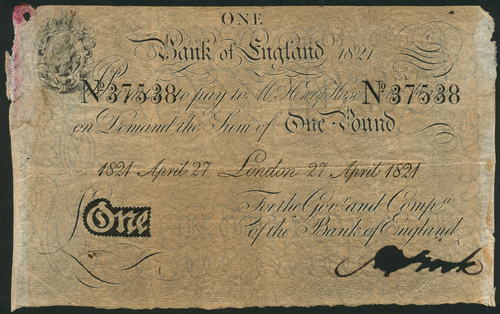 ONE
Bank of England 1821
Nº 37538 to pay to Mr Nº 37538
on Demand the Sum of One Pound
1821 April 27 London 27 April 1821
For the Govr and Compa
£ One of the Bank of England